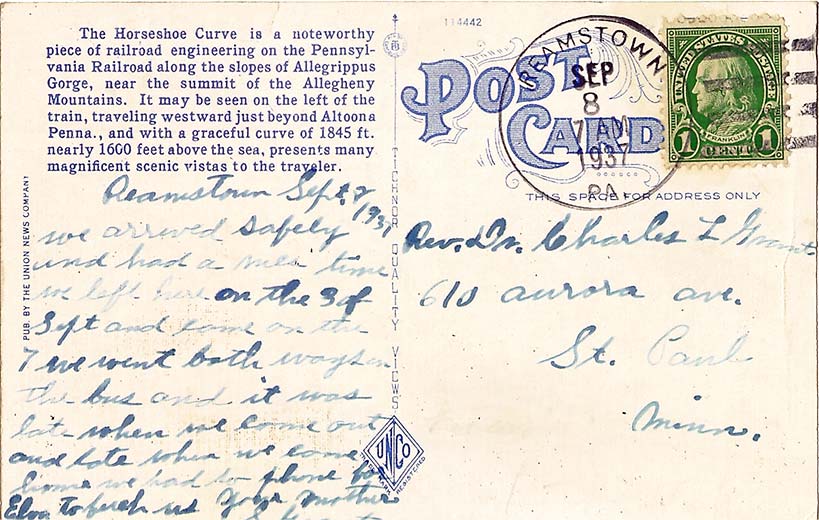 The Horseshoe Curve is a noteworthy
piece of railroad engineering on the Pennsyl-
vania Railroad along the slopes of Allegrippus
Gorge, near the summit of the Allegheny
Mountains. It may be seen on the left of the
train, traveling westward just beyond Altoona
Penna., and with a graceful curve of 1845 ft.
nearly 1600 feet above the sea, presents many
magnificent scenic vistas to the traveler.
Reamstown Sept.
1937
we arrived safely
and had a nice time
we left here on the 3 of
Sept and come on the
7 we went both ways on
the bus and it was
late when we come out
and late when we come
home we had to phone for
to fetch us Your Mother
PUB. BY THE UNION NEWS COMPANY
TICHNOR QUALITY VIEWS
UNCO
REGISTERED
114442
POST
CARD
REAMSTOWN
SEP
8
7 AM
1937
PA.
UNITED STATES POSTAGE
FRANKLIN
1 CENT 1
THIS SPACE FOR ADDRESS ONLY
Rev. Dr. Charles L Grant
610 aurora ave.
St. Paul
Minn.